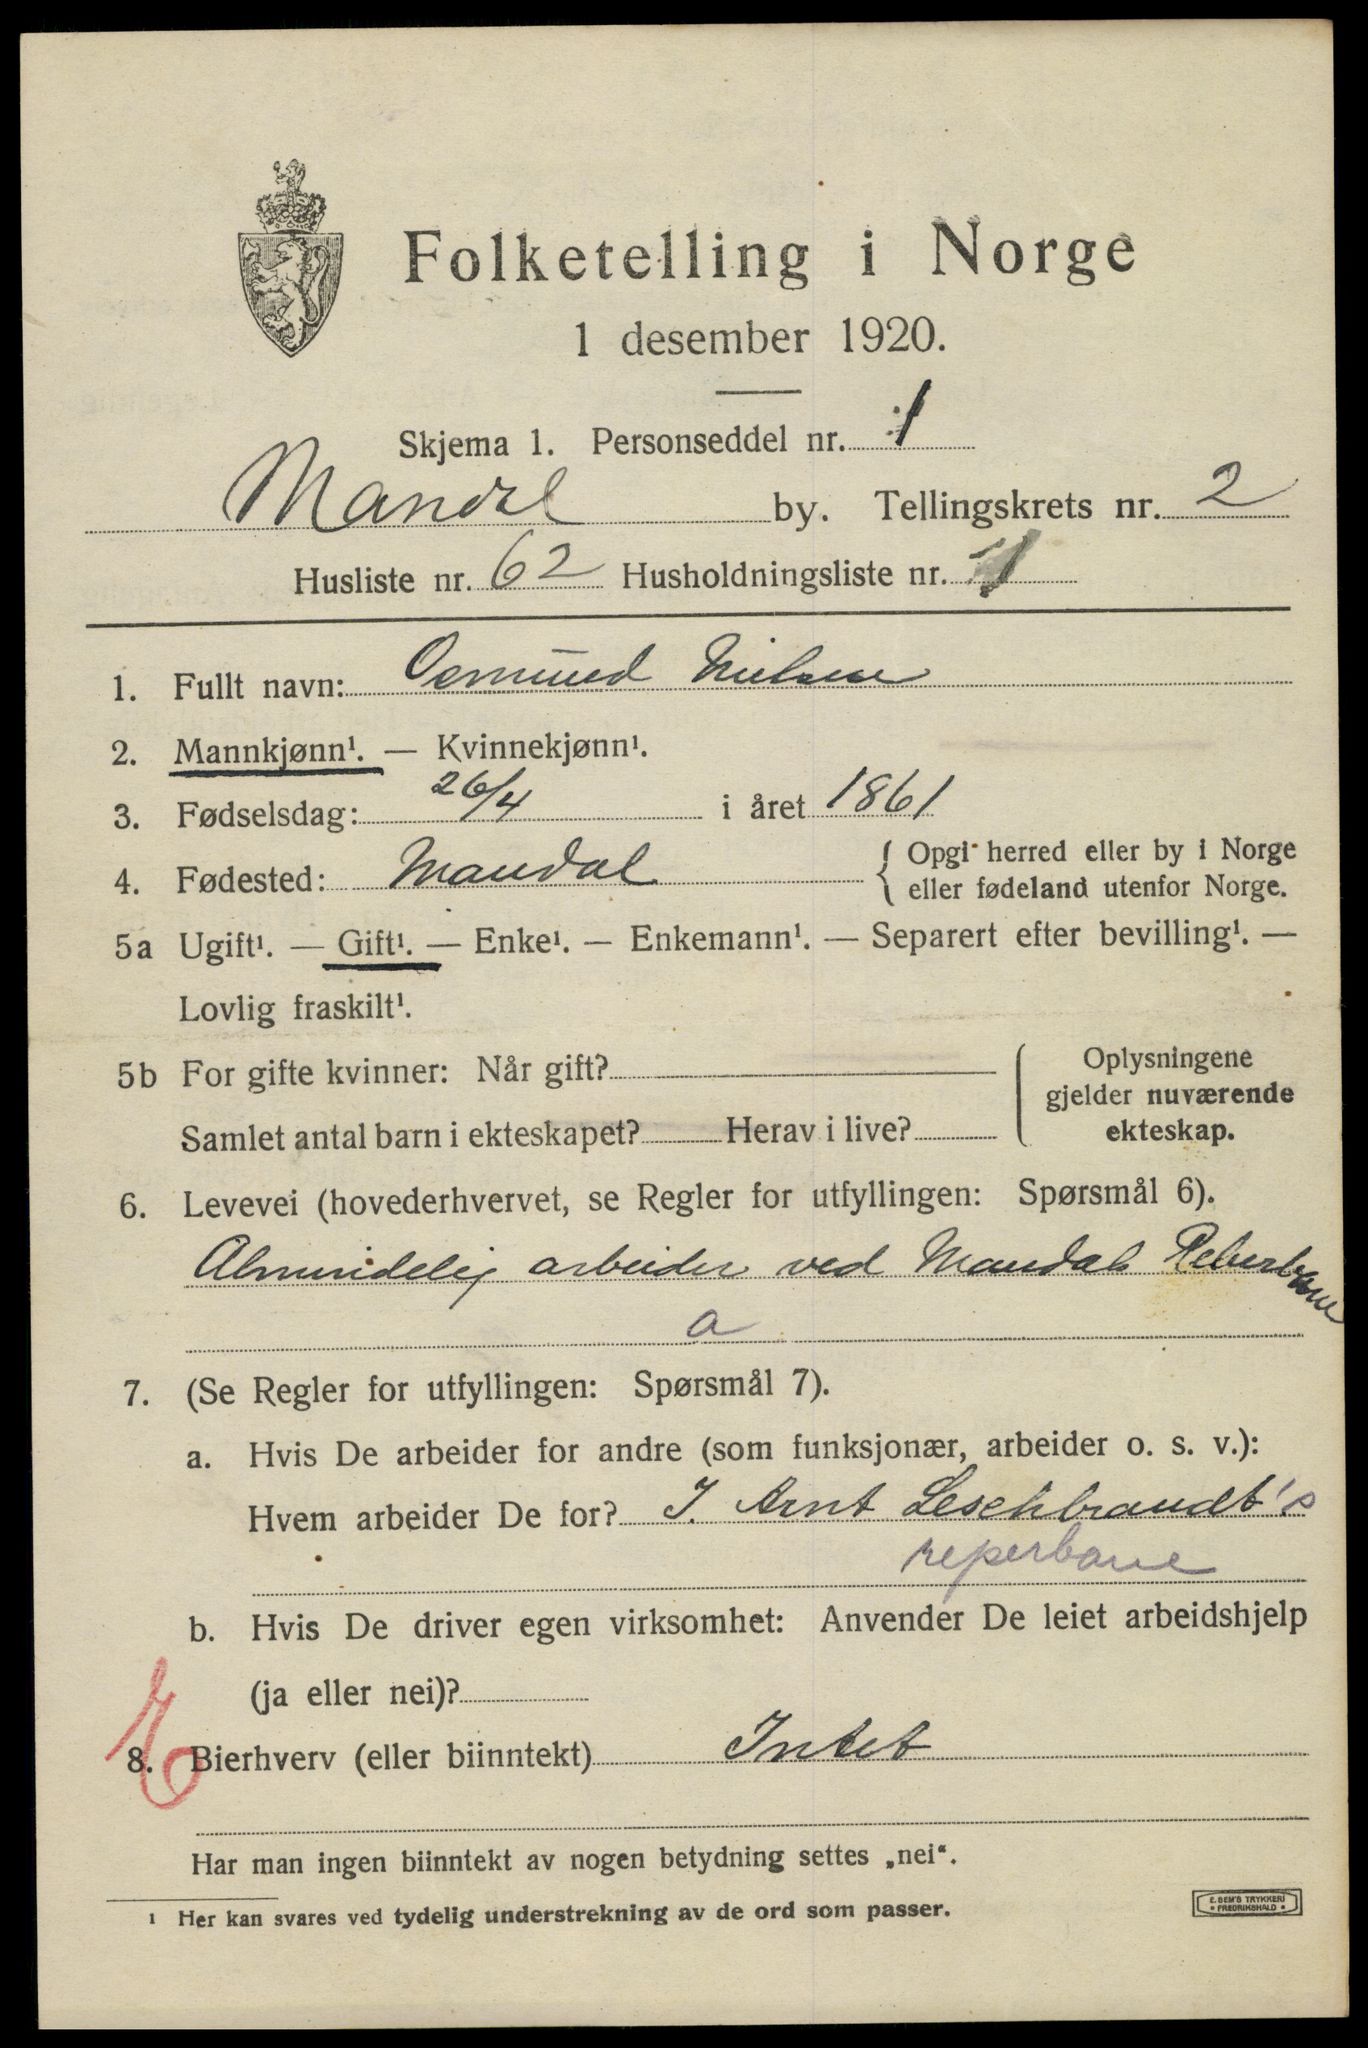 Folketelling i Norge
1 desember 1920.
Skjema 1. Personseddel nr. 1
Mandal by. Tellingskrets nr. 2
Husliste nr. 62 Husholdningsliste nr. 1
1. Fullt navn: Osmund Nielsen
2. Mannkjønn¹. — Kvinnekjønn¹.
3. Fødselsdag: 26/4 i året 1861
4. Fødested: Mandal { Opgi herred eller by i Norge
eller fødeland utenfor Norge.
5a Ugift¹. — Gift¹. — Enke¹. — Enkemann¹. — Separert efter bevilling¹. —
Lovlig fraskilt¹.
5b For gifte kvinner: Når gift? { Oplysningene
gjelder nuværende
Samlet antal barn i ekteskapet? Herav i live? ekteskap.
6. Levevei (hovederhvervet, se Regler for utfyllingen: Spørsmål 6).
Almindelig arbeider ved Mandals Reberbane
a
7. (Se Regler for utfyllingen: Spørsmål 7).
a. Hvis De arbeider for andre (som funksjonær, arbeider o. s. v.):
Hvem arbeider De for? J. Arnt Leschbrandt's
reperbane
b. Hvis De driver egen virksomhet: Anvender De leiet arbeidshjelp
(ja eller nei)?
8. Bierhverv (eller biinntekt) Intet
Har man ingen biinntekt av nogen betydning settes „nei“.
¹ Her kan svares ved tydelig understrekning av de ord som passer.
E. SEM'S TRYKKERI
FREDRIKSHALD